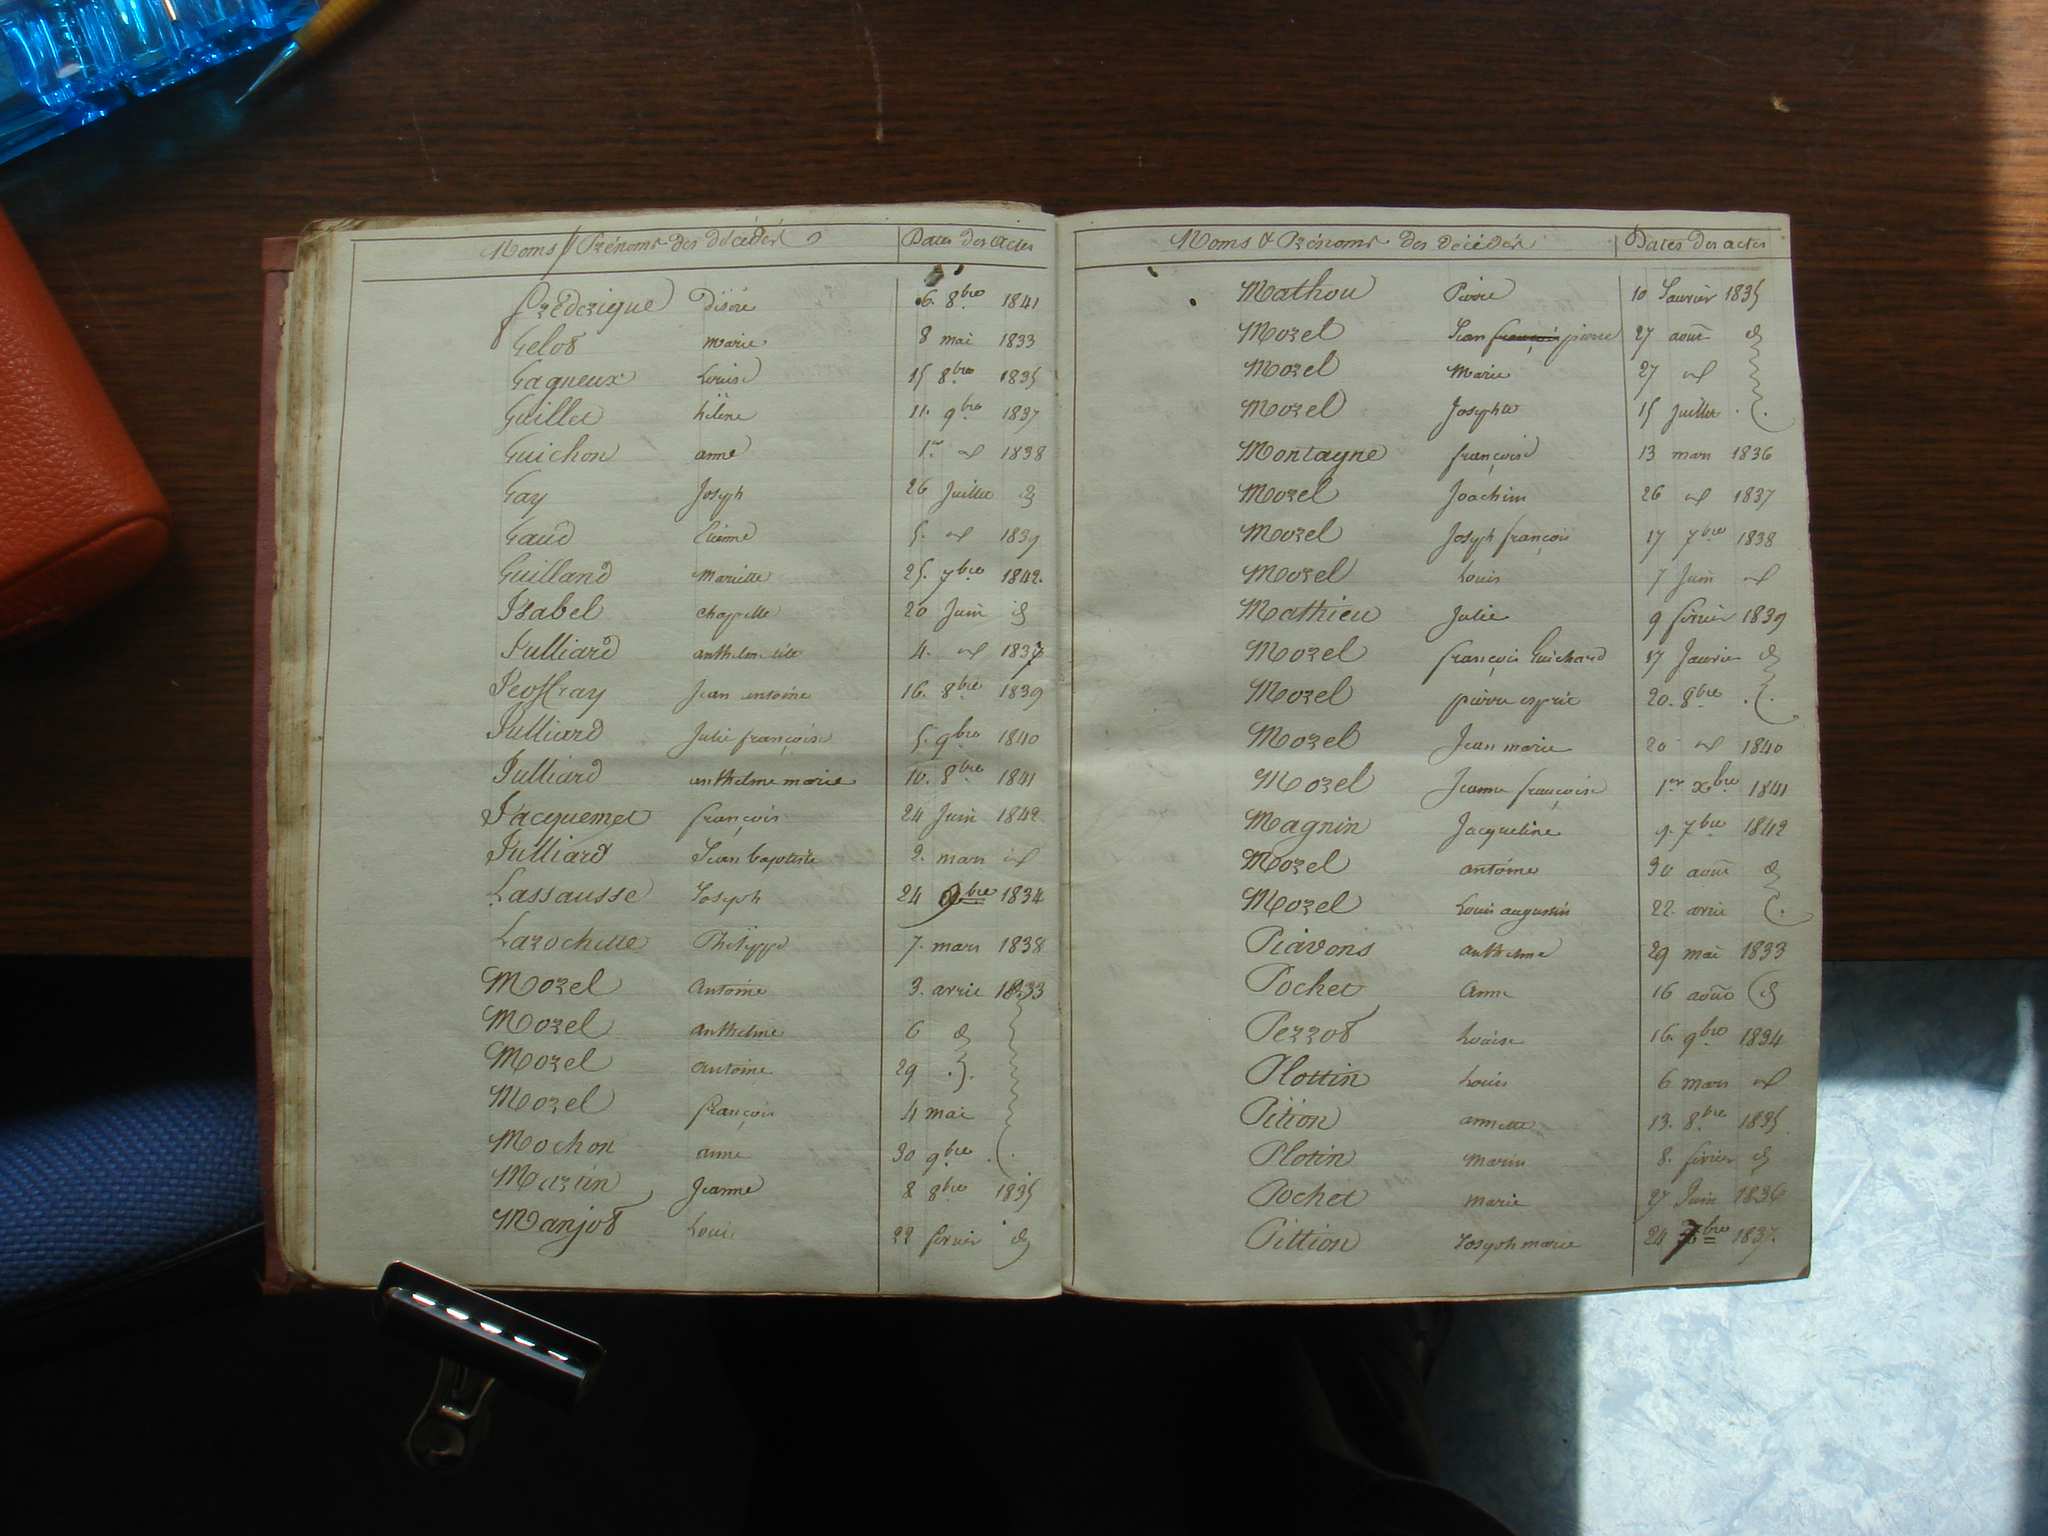 Noms & Prénoms des décédés Dates des actes
frédérique Désiré 6. 8bre 1841
Gelot marie 8 mai 1833
Gagneux Louise 15 8bre 1835
Guillet hélène 11. 9bre 1837
Guichon anne 1er id 1838
Gay Joseph 26 Juillet id
Gaud Etienne 5. id 1839
Guilland Mariette 25. 7bre 1842.
Isabel chapelle 20 Juin id
Julliard anthelme 4. id 1837
Jeoffray Jean antoine 16. 8bre 1839
Julliard Julie françoise 5. 9bre 1840
Julliard anthelme marie 10. 8bre 1841
Jacquemet françois 24 Juin 1842
Julliard Jean baptiste 2. mars id
Lassausse Joseph 24 9bre 1834
Larochette Philippe 7. mars 1838
Morel Antoine 3. avril 1833
Morel anthelme 6 id
Morel antoine 29
Morel françois 4 mai
Mochon anne 30 9bre
Martin Jeanne 8 8bre 1835
Manjot Louis 22 février id
Noms & Prénoms des décédés Dates des actes
Mathou Pierre 10 Janvier 1835
Morel Jean françois pierre 27 août id
Morel Marie 27 id
Morel Josephte 15 Juillet
Montagne françoise 13 mars 1836
Morel Joachim 26 id 1837
Morel Joseph françois 17 7bre 1838
Morel Louis 7 Juin id
Mathieu Julie 9 février 1839
Morel françois Guichard 17 Janvier id
Morel pierre esprit 20. 8bre
Morel Jean marie 20 id 1840
Morel Jeanne françoise 1er Xbre 1841
Magnin Jacqueline 9. 7bre 1842
Morel antoine 30 août id
Morel Louis augustin 22. avril
Piavons anthelme 29 mai 1833
Pochet Anne 16 août id
Perrot Louise 16. 9bre 1834
Plottin Louis 6 mars id
Pition annette 13. 8bre 1835
Plotin Marin 8. février id
Pochet marie 27 Juin 1836
Pittion Joseph marie 24 7bre 1837.